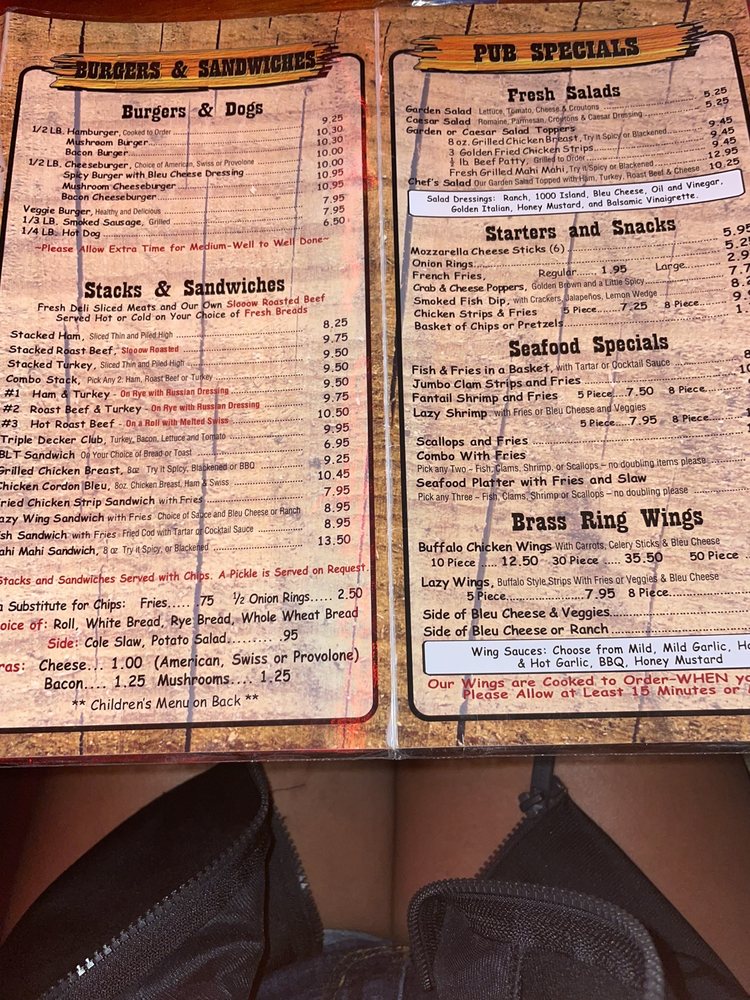 BURGERS & SANDWICHES
Burgers & Dogs
1/2 LB. Hamburger, Cooked to Order 9.25
Mushroom Burger 10.30
Bacon Burger 10.30
1/2 LB. Cheeseburger, Choice of American, Swiss or Provolone 10.00
Spicy Burger with Bleu Cheese Dressing 10.00
Mushroom Cheeseburger 10.95
Bacon Cheeseburger 10.95
Veggie Burger, Healthy and Delicious 7.95
1/3 LB. Smoked Sausage, Grilled 7.95
1/4 LB. Hot Dog 6.50
~Please Allow Extra Time for Medium-Well to Well Done~
Stacks & Sandwiches
Fresh Deli Sliced Meats and Our Own Slooow Roasted Beef
Served Hot or Cold on Your Choice of Fresh Breads
Stacked Ham, Sliced Thin and Piled High 8.25
Stacked Roast Beef, Slooow Roasted 9.75
Stacked Turkey, Sliced Thin and Piled High 9.50
Combo Stack, Pick Any 2: Ham, Roast Beef or Turkey 9.50
#1 Ham & Turkey - On Rye with Russian Dressing 9.50
#2 Roast Beef & Turkey - On Rye with Russian Dressing 9.75
#3 Hot Roast Beef - On a Roll with Melted Swiss 10.50
Triple Decker Club, Turkey, Bacon, Lettuce and Tomato 9.95
BLT Sandwich On Your Choice of Bread or Toast 6.95
Grilled Chicken Breast, 8oz Try it Spicy, Blackened or BBQ 9.25
Chicken Cordon Bleu, 8oz. Chicken Breast, Ham & Swiss 10.45
ried Chicken Strip Sandwich with Fries 7.95
azy Wing Sandwich with Fries Choice of Sauce and Bleu Cheese or Ranch 8.95
sh Sandwich with Fries Fried Cod with Tartar or Cocktail Sauce 8.95
ahi Mahi Sandwich, 8 oz Try it Spicy, or Blackened 13.50
Stacks and Sandwiches Served with Chips. A Pickle is Served on Request.
a Substitute for Chips: Fries..... .75 ½ Onion Rings..... 2.50
oice of: Roll, White Bread, Rye Bread, Whole Wheat Bread
Side: Cole Slaw, Potato Salad......... .95
ras: Cheese... 1.00 (American, Swiss or Provolone)
Bacon.... 1.25 Mushrooms.... 1.25
** Children's Menu on Back **
PUB SPECIALS
Fresh Salads
Garden Salad Lettuce, Tomato, Cheese & Croutons 5.25
Caesar Salad Romaine, Parmesan, Croutons & Caesar Dressing 5.25
Garden or Caesar Salad Toppers
8 oz. Grilled Chicken Breast, Try it Spicy or Blackened 9.45
3 Golden Fried Chicken Strips 9.45
½ lb. Beef Patty, Grilled to Order 9.45
Fresh Grilled Mahi Mahi, Try it Spicy or Blackened 12.95
Chef's Salad Our Garden Salad Topped with Ham, Turkey, Roast Beef & Cheese 10.25
Salad Dressings: Ranch, 1000 Island, Bleu Cheese, Oil and Vinegar,
Golden Italian, Honey Mustard, and Balsamic Vinaigrette.
Starters and Snacks
Mozzarella Cheese Sticks (6) 5.95
Onion Rings 5.2
French Fries, Regular.... 1.95 Large.... 2.9
Crab & Cheese Poppers, Golden Brown and a Little Spicy 7.7
Smoked Fish Dip, with Crackers, Jalapeños, Lemon Wedge 8.
Chicken Strips & Fries 5 Piece.....7.25 8 Piece 9.
Basket of Chips or Pretzels 1.
Seafood Specials
Fish & Fries in a Basket, with Tartar or Cocktail Sauce 8
Jumbo Clam Strips and Fries 10
Fantail Shrimp and Fries 5 Piece....7.50 8 Piece
Lazy Shrimp with Fries or Bleu Cheese and Veggies
5 Piece.....7.95 8 Piece
Scallops and Fries
Combo With Fries
Pick any Two - Fish, Clams, Shrimp, or Scallops - no doubling items please
Seafood Platter with Fries and Slaw
Pick any Three - Fish, Clams, Shrimp or Scallops - no doubling please
Brass Ring Wings
Buffalo Chicken Wings With Carrots, Celery Sticks & Bleu Cheese
10 Piece .... 12.50 30 Piece ..... 35.50 50 Piece
Lazy Wings, Buffalo Style Strips With Fries or Veggies & Bleu Cheese
5 Piece 7.95 8 Piece
Side of Bleu Cheese & Veggies
Side of Bleu Cheese or Ranch
Wing Sauces: Choose from Mild, Mild Garlic, Ho
& Hot Garlic, BBQ, Honey Mustard
Our Wings are Cooked to Order-WHEN yo
Please Allow at Least 15 Minutes or